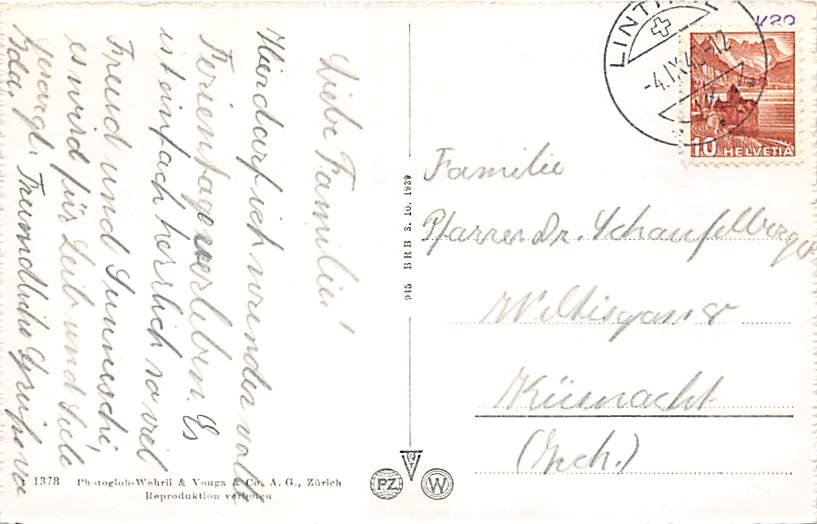 Liebe Familie!
Hier darf ich wundervolle
Ferientage verleben. Es
ist einfach herrlich so viel
Freud und Sunneschi,
es wird für Leib und Seele
gesorgt. Freundliche Grüsse von
Ida.
1378 Photoglob-Wehrli & Vouga & Co. A. G., Zürich
Reproduktion verboten
945 BRB 3. 10. 1939
LINTHAL
-4.IX.4 -12
10 HELVETIA
Familie
Pfarrer Dr. Schaufelberger
Weltisgasse
Küsnacht
(Zch.)
PZ
W